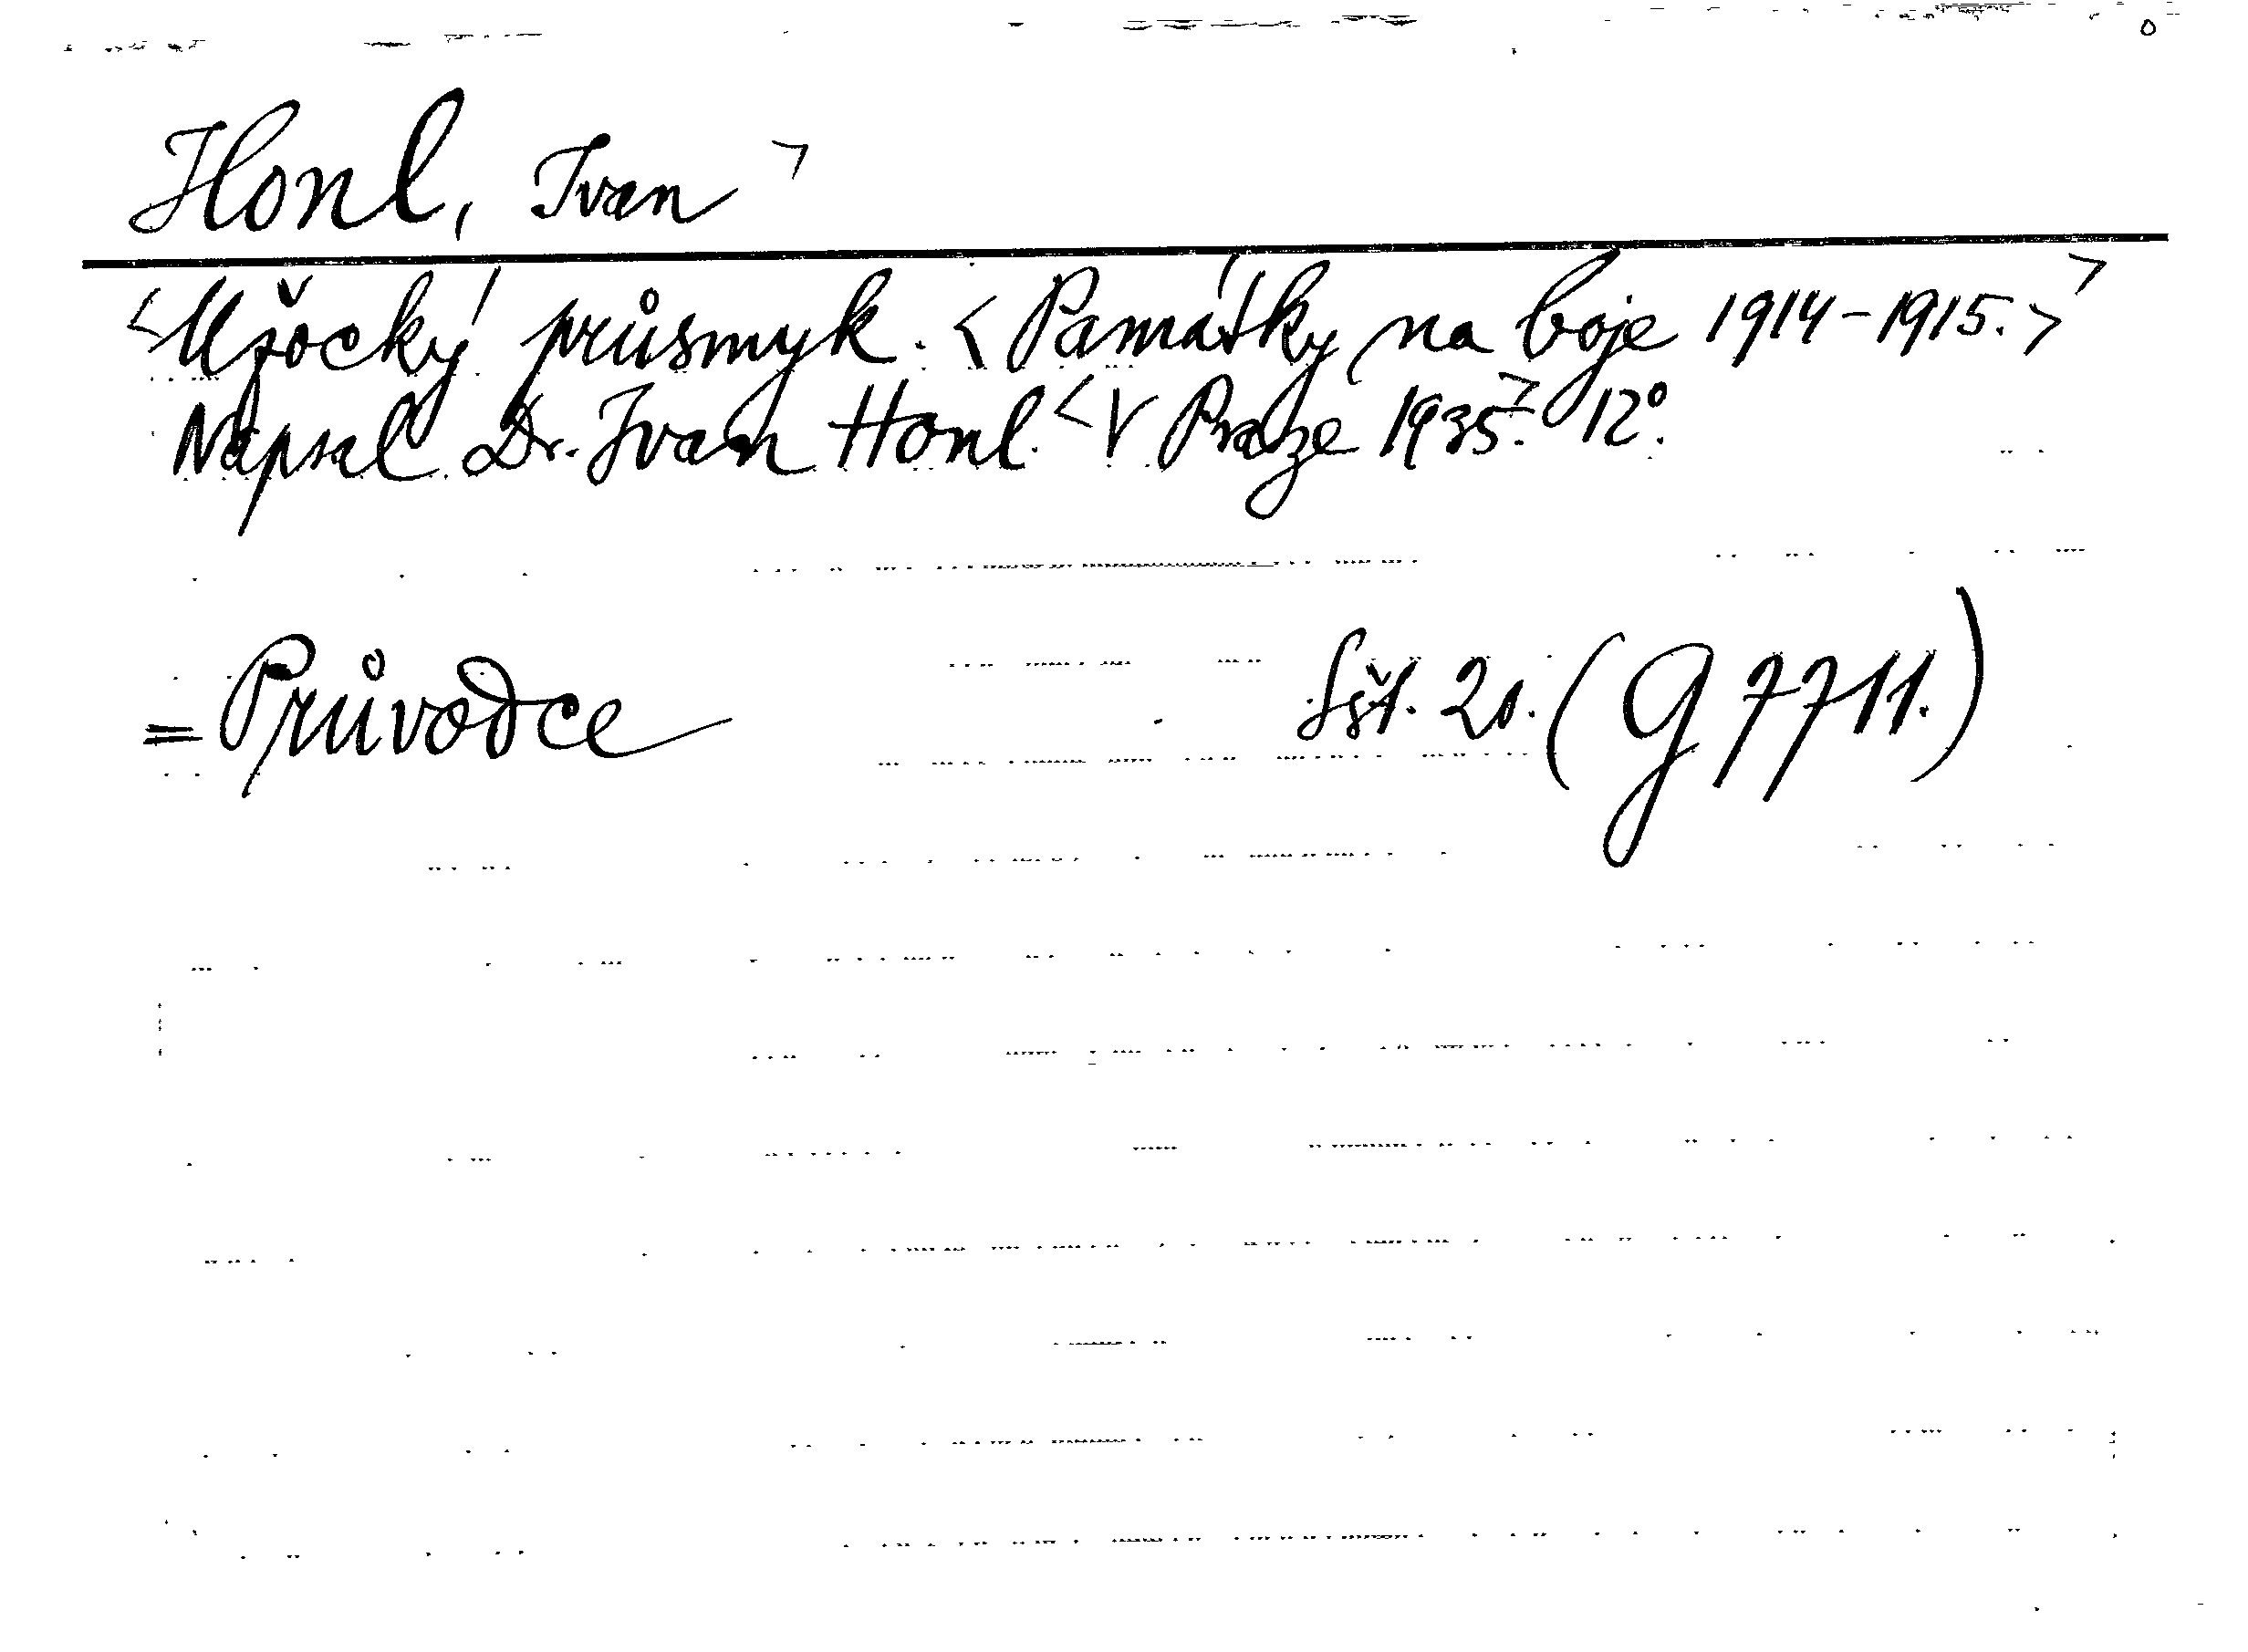 Honl, Ivan >
<Užocký průsmyk. <Památky na boje 1914-1915.>>
Napsal Dr. Ivan Honl. <V Praze 1935.> 12°.
= Průvodce Sšt. 20. (G 7711.)